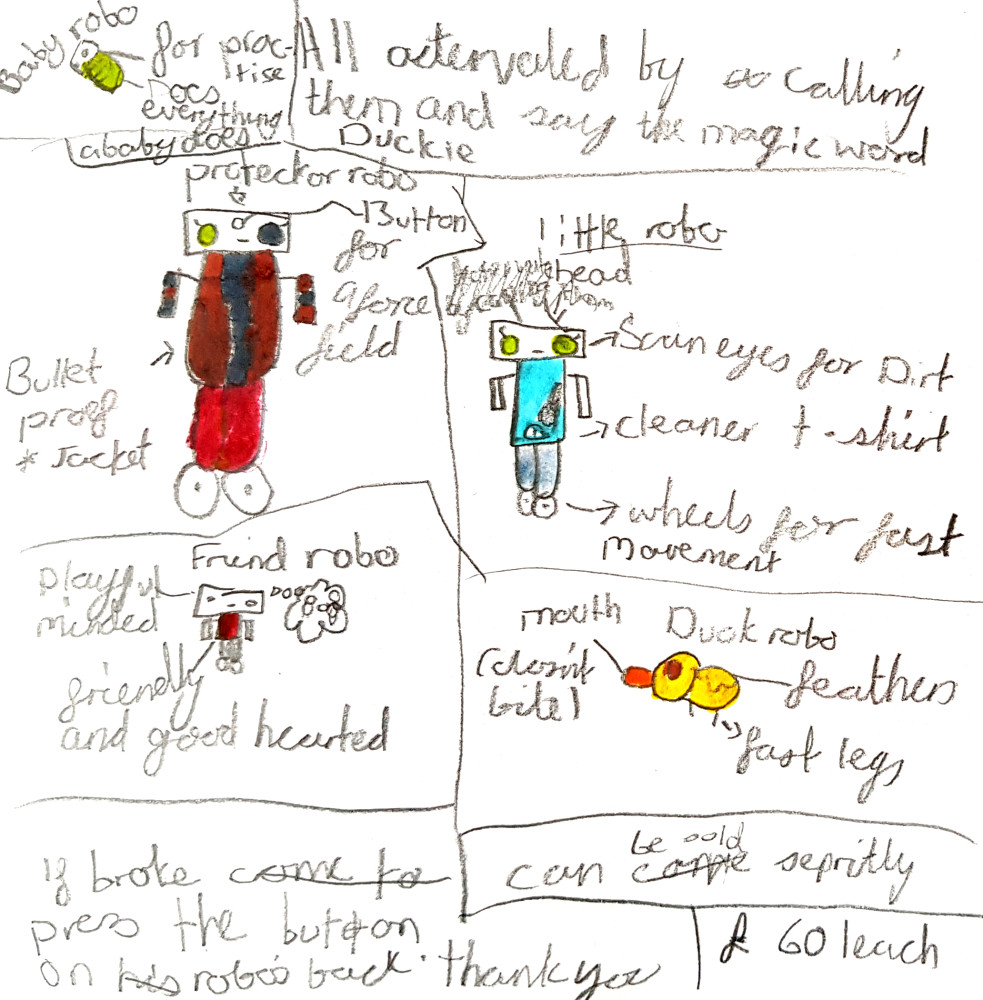 Baby robo
for prac-
tise
Docs
everything
ababy does
All actervated by calling
them and say the magic word
Duckie
protector robo
Button
for
a force
field
Bullet
proof
Jacket
little robo
head
Scan eyes for Dirt
cleaner t-shirt
wheels for fast
Movement
Frind robo
playful
minded
DOG
friendly
and good hearted
Duck robo
mouth
(dosn't
bite)
feathers
fast legs
If broke come to
press the button
on his robo's back. thank you
be sold
can come sepritly
£ 60 each